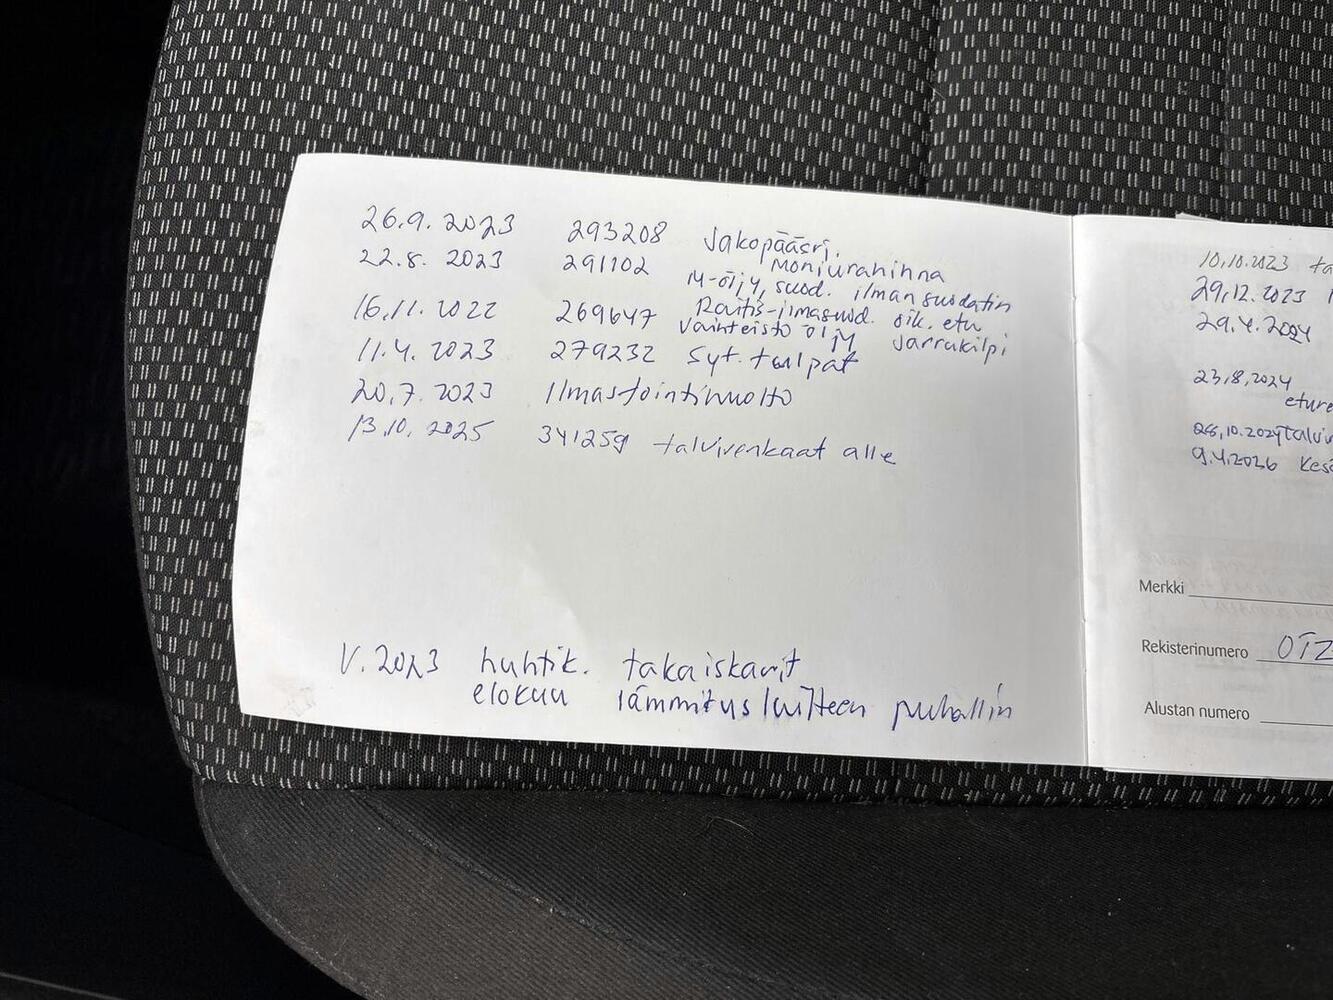 26.9.2023 293208 Jakopääsri,
Moniurahihna
22.8. 2023 291102 M-öljy, suod. ilmansuodatin
16.11.2022 269647 Raitis-ilmasuod. oik. etu
Vaihteisto öljy Jarrukilpi
11.4. 2023 279232 Syt. tulpat
20.7.2023 Ilmastointihuolto
13.10.2025 341259 talvirenkaat alle
V.2023 huhtik. takaiskarit
elokuu lämmityslaitteen puhallin
10.10.2023 ta
29.12.2023
29.4.2024
23.8.2024
eture
28.10.2024 talvir
9.4.2026 Kes
Merkki
Rekisterinumero OTZ
Alustan numero